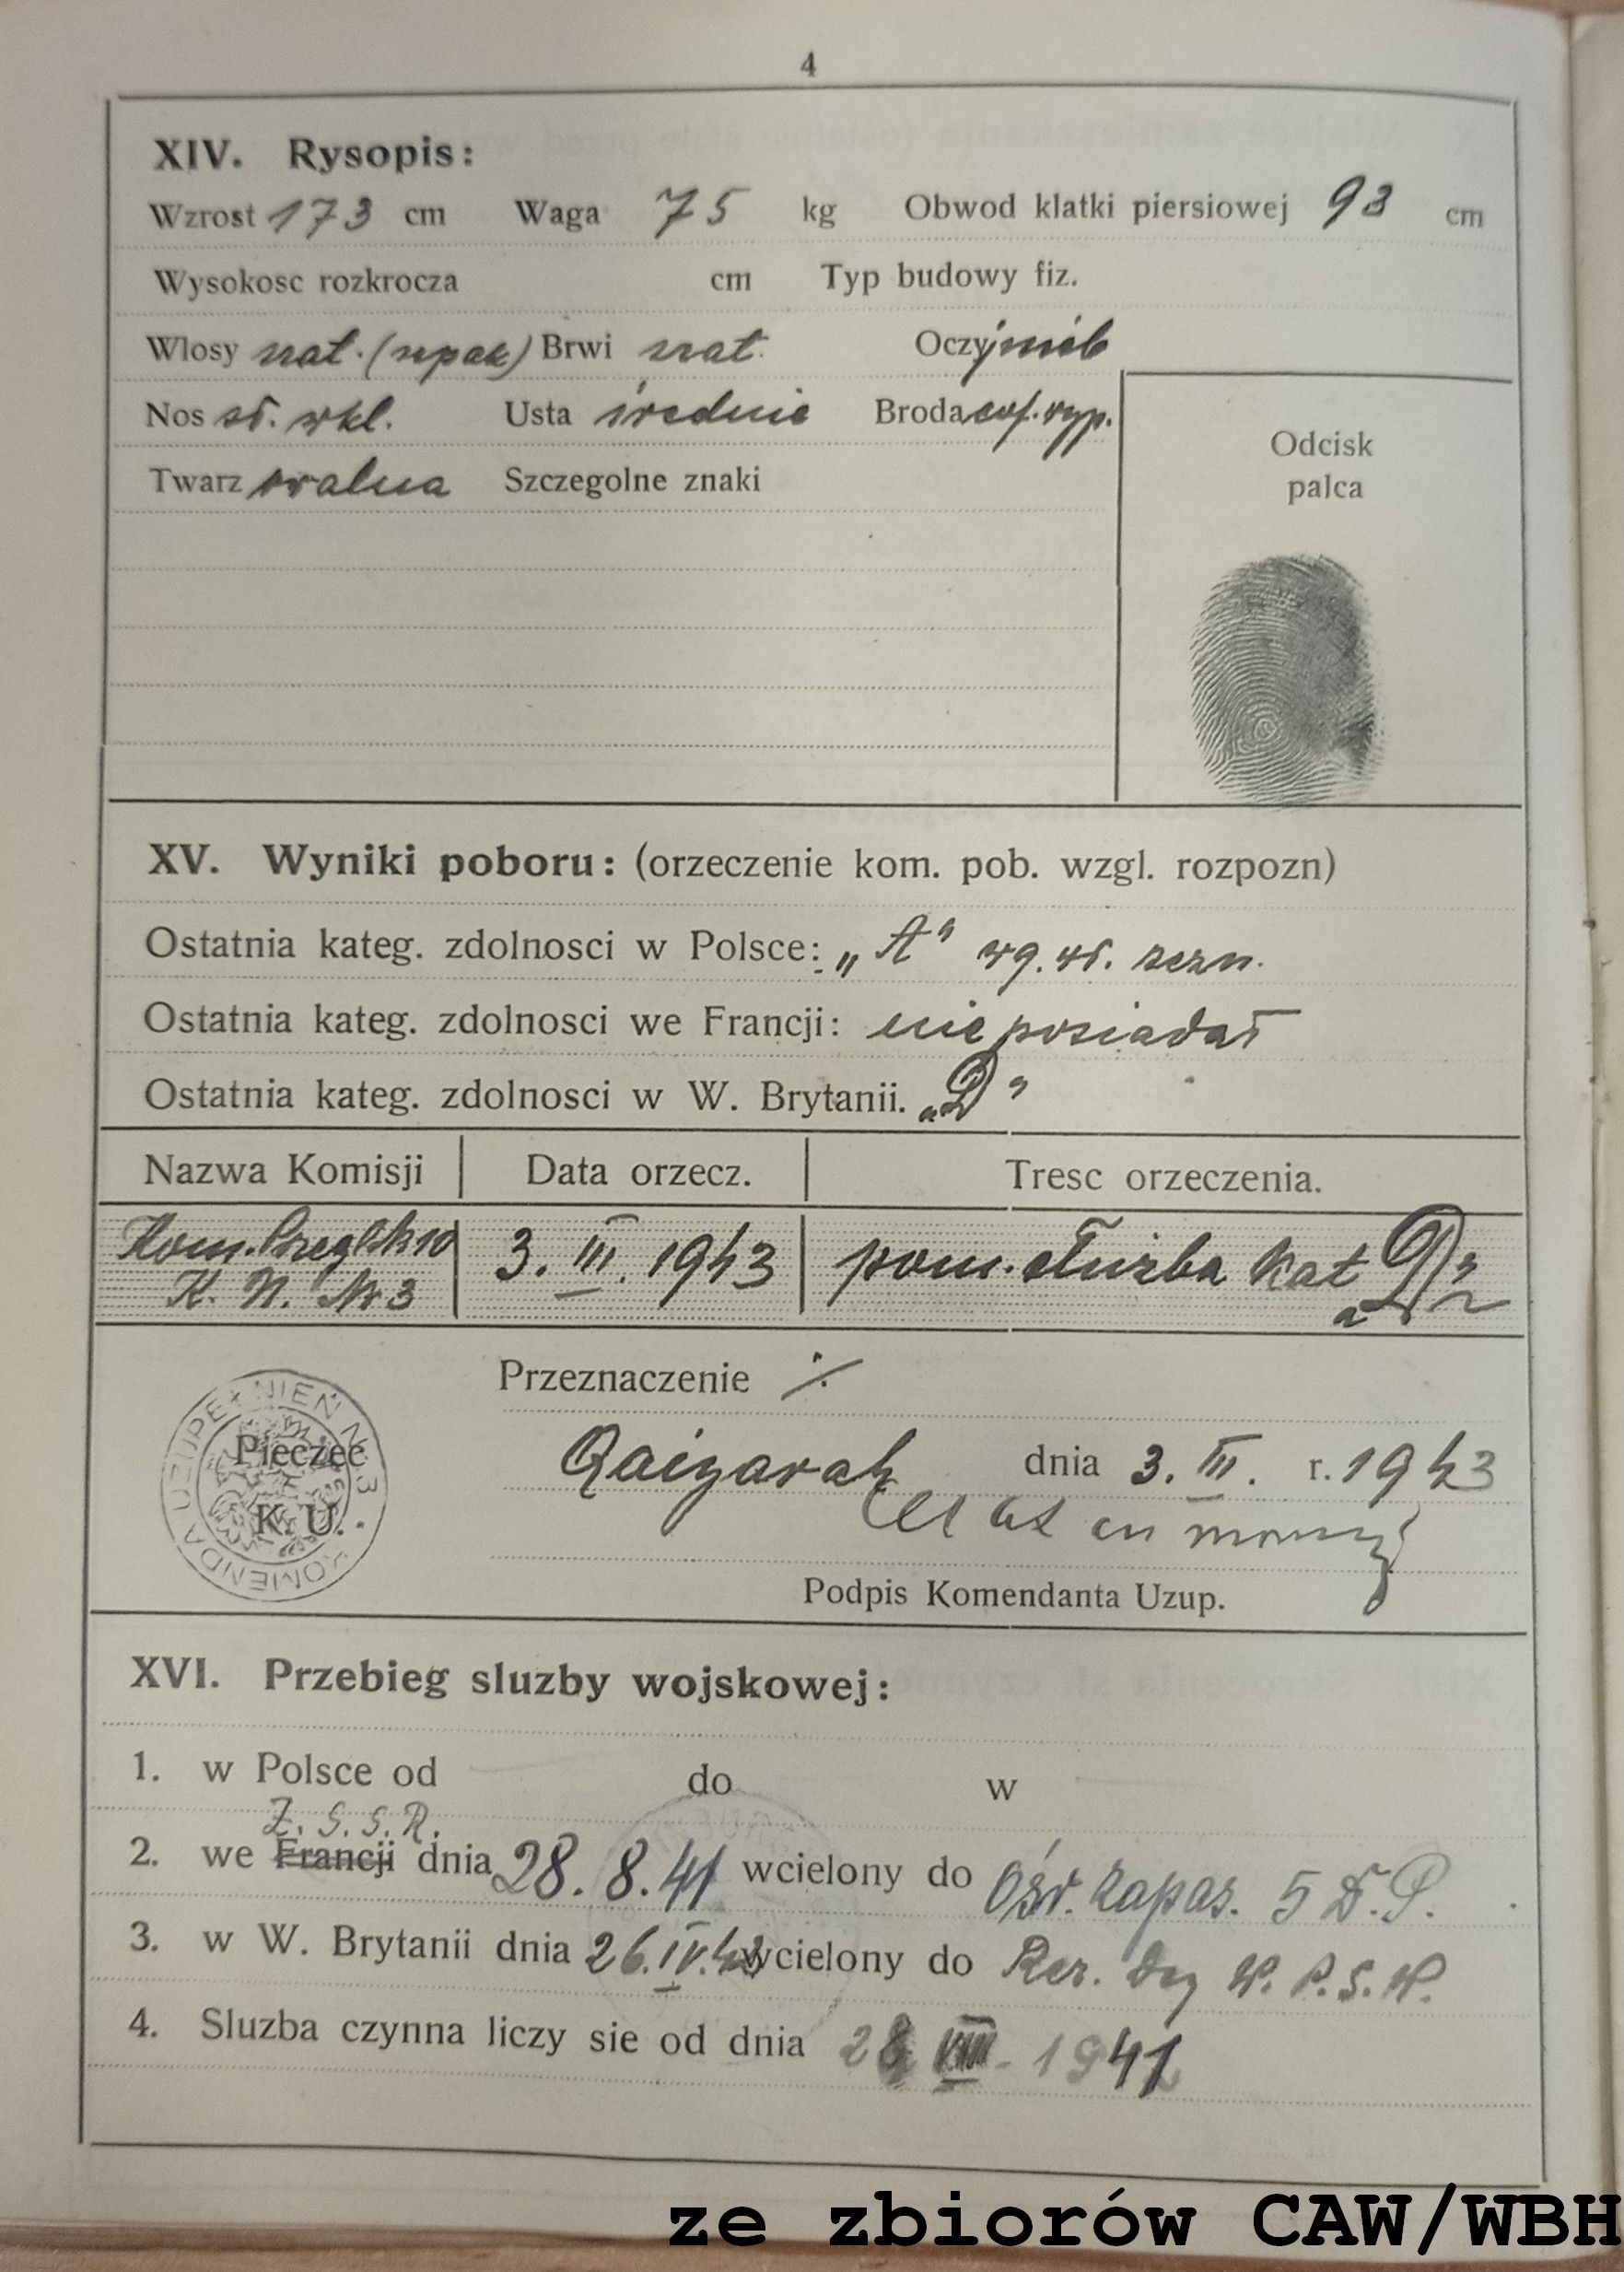 4
XIV. Rysopis:
Wzrost 173 cm Waga 75 kg Obwod klatki piersiowej 93 cm
Wysokosc rozkrocza cm Typ budowy fiz.
Wlosy szat. (szpak) Brwi szat. Oczy nieb
Nos śr. wkl. Usta średnie Broda wyp.
Twarz owalna Szczegolne znaki
Odcisk
palca
XV. Wyniki poboru: (orzeczenie kom. pob. wzgl. rozpozn)
Ostatnia kateg. zdolnosci w Polsce: „A” wg. wł. zezn.
Ostatnia kateg. zdolnosci we Francji: nie posiadał
Ostatnia kateg. zdolnosci w W. Brytanii. „D”
Nazwa Komisji Data orzecz. Tresc orzeczenia.
Kom. Przegl. 3. III. 1943 pom. służba kat „D”
K. U. Nr 3
Przeznaczenie ·/.
KOMENDA UZUPEŁNIEŃ Nr 3
Pieczec
K. U.
Qaizarah dnia 3. III. r. 1943
Podpis Komendanta Uzup.
XVI. Przebieg sluzby wojskowej:
1. w Polsce od — do w —
Z. S. S. R.
2. we Francji dnia 28. 8. 41 wcielony do Ośr. Zapas. 5 D.P.
3. w W. Brytanii dnia 26. IV. 43 wcielony do W. P. S. W.
4. Sluzba czynna liczy sie od dnia 28 VIII - 1941
ze zbiorów CAW/WBH